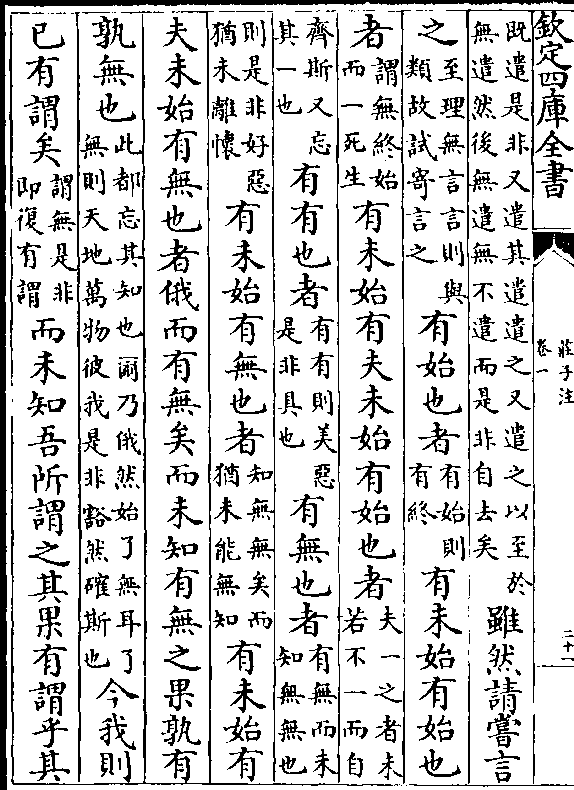 欽定四庫全書
莊子注
卷一
二十一
既遣是非又遣其遣遣之又遣之以至於無遣然後無遣無不遣而是非自去矣雖然請嘗言
之至理無言言則與類故試寄言之有始也者有始則有終有未始有始也
者謂無終始而一死生有未始有夫未始有始也者夫一之者未若不一而自
齊斯又忘其一也有有也者有有則美惡是非具也有無也者有無而未知無無也
則是非好惡猶未離懷有未始有無也者知無無矣而猶未能無知有未始有
夫未始有無也者俄而有無矣而未知有無之果孰有
孰無也此都忘其知也爾乃俄然始了無耳了無則天地萬物彼我是非豁然確斯也今我則
已有謂矣謂無是非即復有謂而未知吾所謂之其果有謂乎其